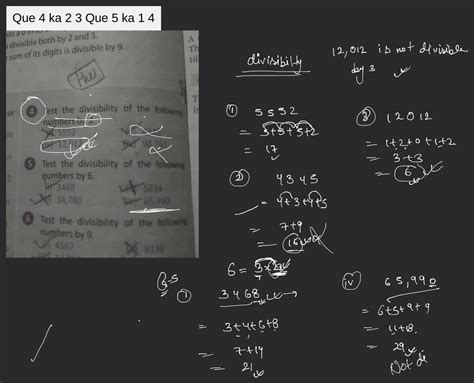 Que 4 ka 2 3 Que 5 ka 1 4
divisible both by 2 and 3.
sum of its digits is divisible by 9.
HW
4 Test the divisibility of the following
numbers by
5552
5 Test the divisibility of the following
numbers by 6.
3468
5634
34,780
65,990
6 Test the divisibility of the following
numbers by 9.
4567
8136
divisibilty
12,012 is not divisible
by 3
5552
= 5+5+5+2
= 17
4345
= 4+3+4+5
7+9
= 16
3 12012
= 1+2+0+1+2
= 3+3
6
6 = 3×2
3468
= 3+4+6+8
= 7+14
= 21
iv 65,990
= 6+5+9+9
= 11+18
= 29
Not di